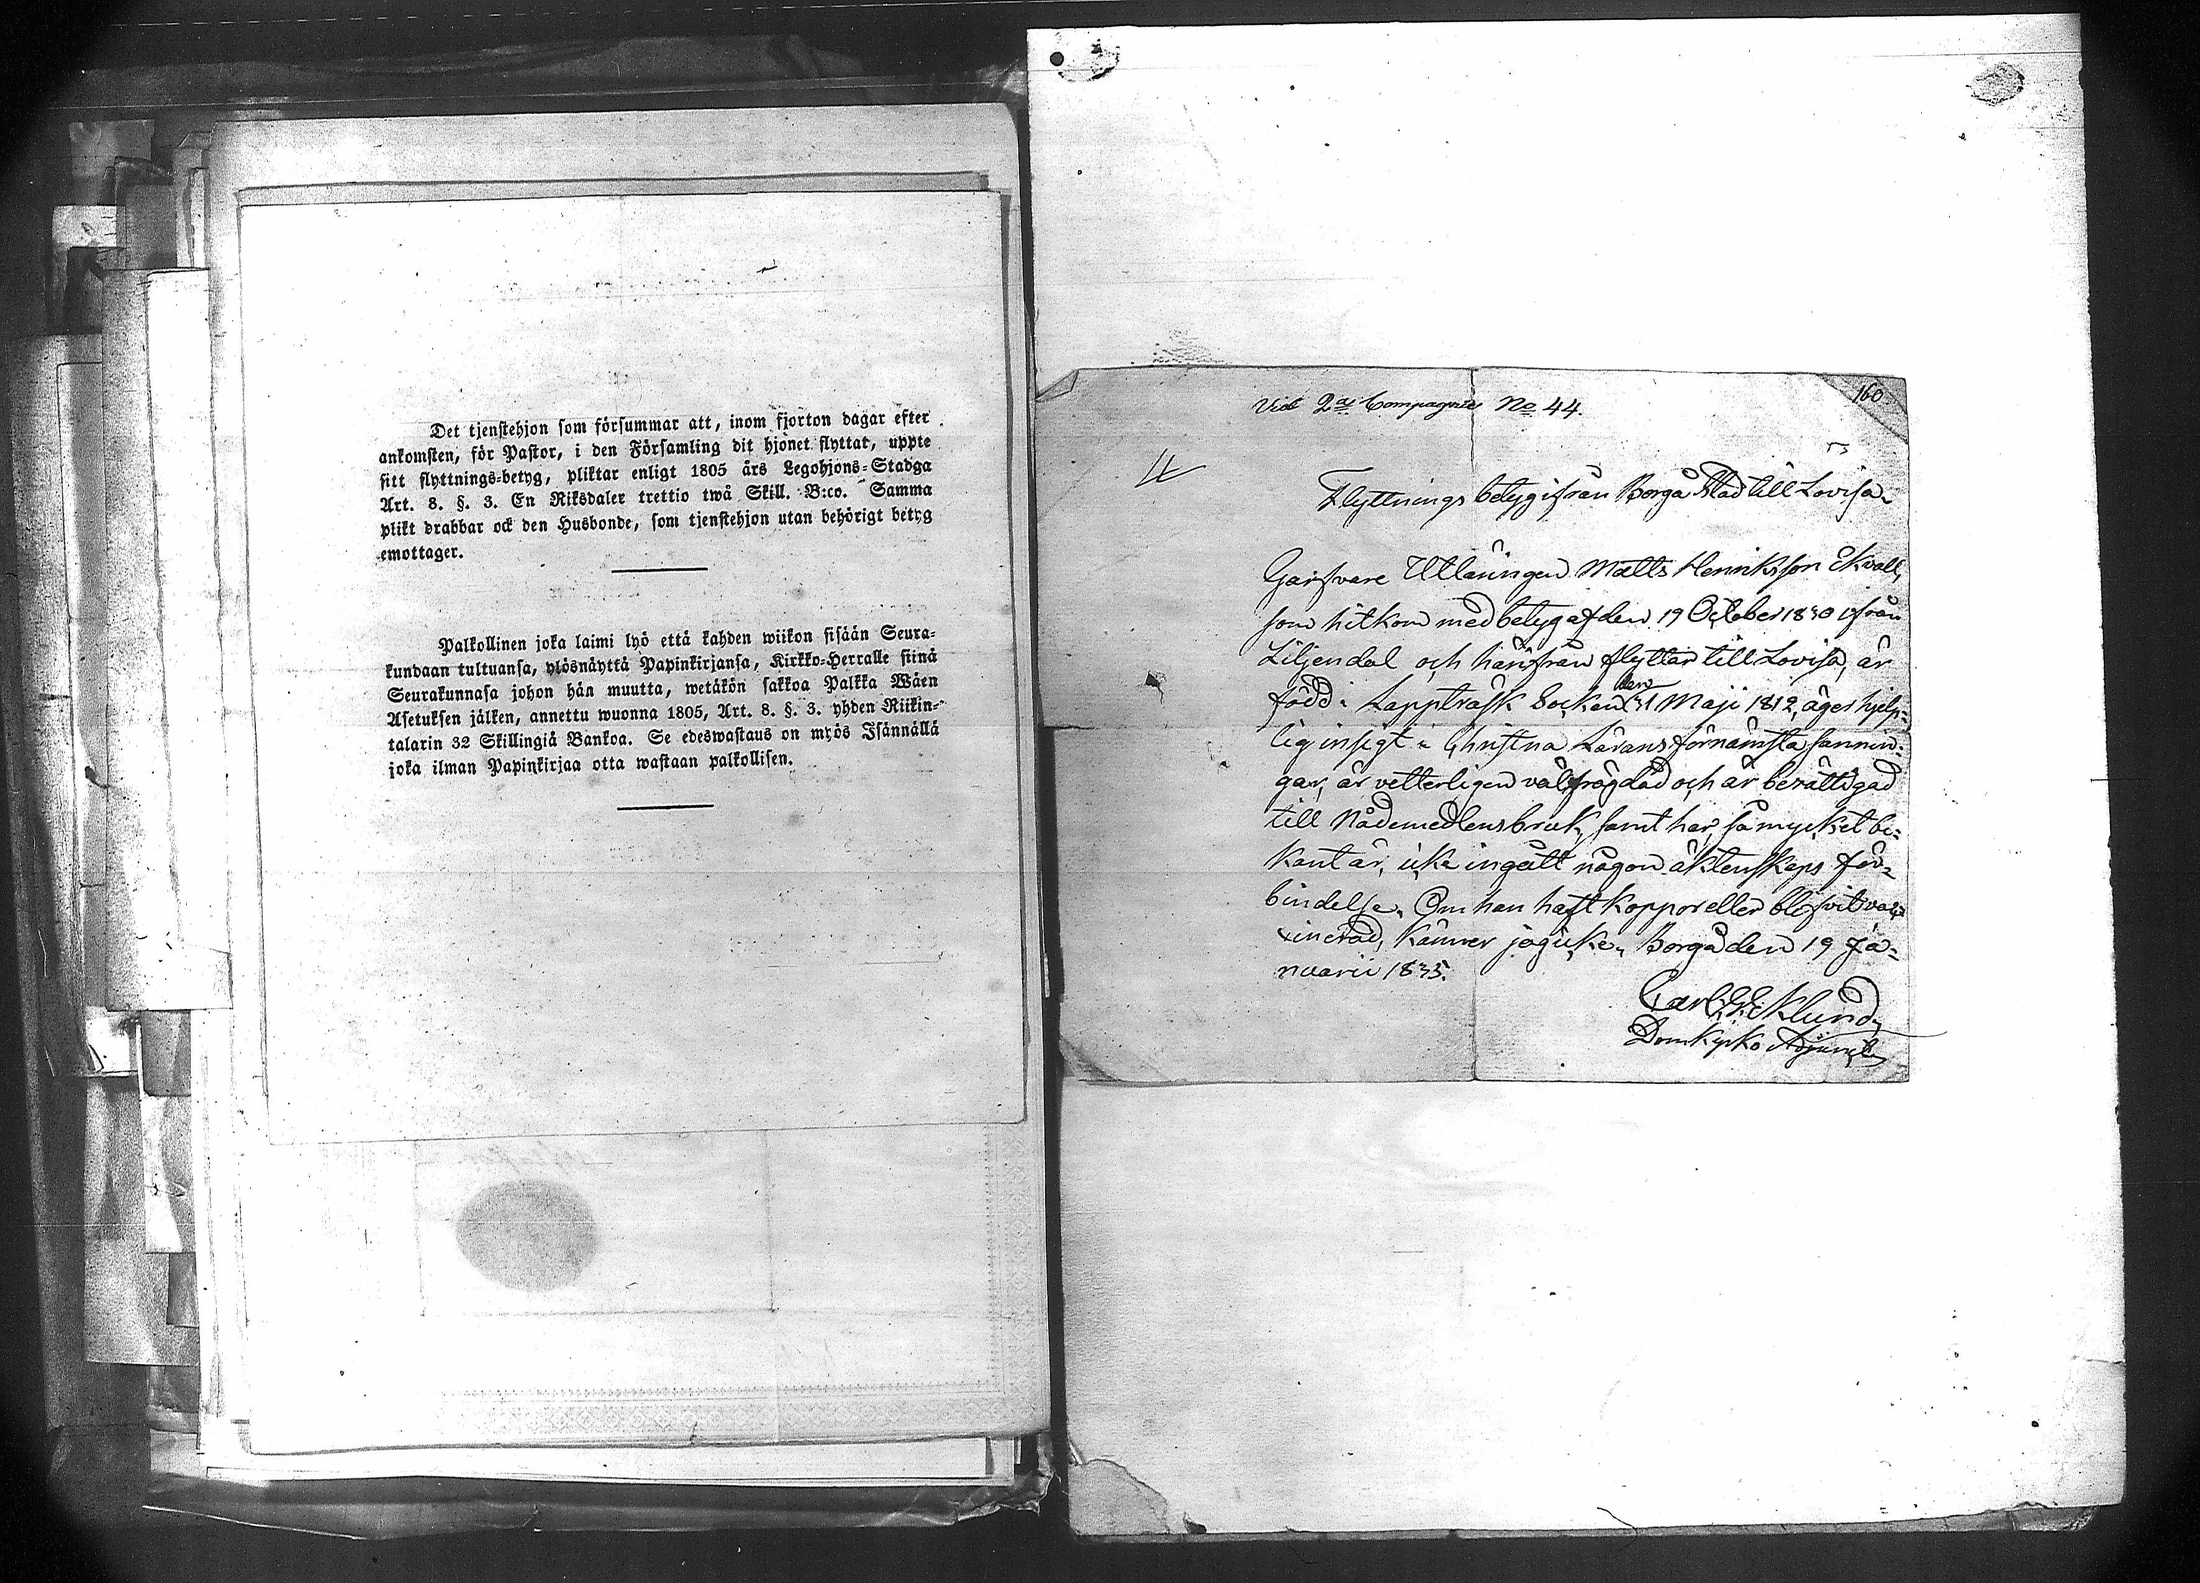 Det tjenstehjon som försummar att, inom fjorton dagar efter
ankomsten, för Pastor, i den Församling dit hjonet flyttat, uppte
sitt flyttnings-betyg, pliktar enligt 1805 års Legohjons-Stadga
Art. 8. §. 3. En Riksdaler trettio twå Skill. B:co. Samma
plikt drabbar ock den Husbonde, som tjenstehjon utan behörigt betyg
emottager.
Palkollinen joka laimi lyö että kahden wiikon sisään Seura-
kundaan tultuansa, ylösnäyttä Papinkirjansa, Kirkko-Herralle siinä
Seurakunnasa johon hän muutta, wetäkön sakkoa Palkka Wäen
Asetuksen jälken, annettu wuonna 1805, Art. 8. §. 3. yhden Riikin-
talarin 32 Skillingiä Bankoa. Se edeswastaus on myös Isännällä
joka ilman Papinkirjaa otta wastaan palkollisen.
160
Vid 2a Compagnie No 44.
Flyttnings betyg ifrån Borgå Stad till Lovisa
Garfvare Utlärlingen Matts Henriksson Ekvall,
som hitkom med betyg af den 19 October 1830 ifrån
Liljendal och härifrån flyttar till Lovisa, är
född i Lappträsk Socken den 31 Maji 1812, äger hjelp-
lig insigt i Christna Lärans förnämsta sannin-
gar, är vetterligen välfrägdad och är berättigad
till Nådemedlens bruk, samt har, så mycket be-
kant är, icke ingått någon äktenskaps för-
bindelse. Om han haft koppor eller blifvit vac-
cinerad, känner jag icke. Borgå den 19 Ja-
nuarii 1835.
Carl Eklund
Domkyrko Adjunct